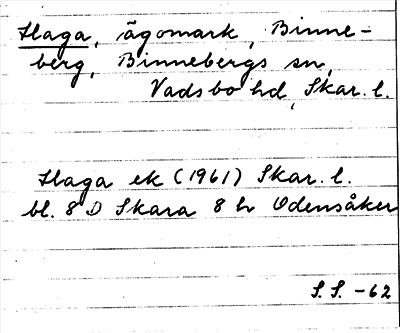 Haga, ägomark, Binne-
berg, Binnebergs sn,
Vadsbo hd, Skar. l.
Haga ek (1961) Skar. l.
bl. 8 D Skara 8 h Odensåker
S. S. -62